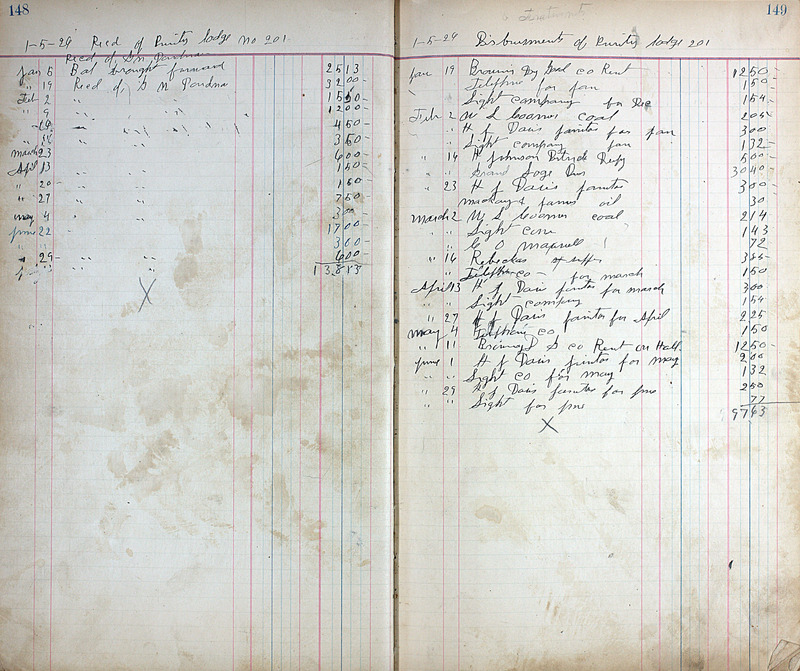 148
1-5-29 Recd of Purity lodge No 201
Recd of S M
Jan 5 Bal brought forward 2513
" 19 Recd of S M 3200
Feb 2 " " 1500
" 9 " " 1200
" " 450
" " 350
March 23 " " 600
April 13 " " 150
" 20 " " 100
" 27 " " 750
May 4 " " 300
June 22 " " 1700
" " 300
" 29 " " 600
13813
X
149
1-5-29 Disbursments of Purity lodge 201
Jan 19 Co Rent 1250
Telephone for Jan 150
Light company for Dec 154
Feb 2 W S coal 205
" " H J Davis janitor for Jan 300
" " Light company Jan 132
" 14 H Johnson 500
" " Grand Loge Dues 3040
" 23 H J Davis janitor 300
oil 30
March 2 W S coal 214
" " Light 143
" " C O 72
" 16 Rebeckas 385
" " Telephone co for March 150
April 13 H J Davis janitor for March 300
" " Light company 154
" 27 H J Davis janitor for April 225
May 4 Telephone co 150
" 11 S co Rent on Hall 1250
June 1 H J Davis janitor for May 200
" " Light co for May 132
" 29 H J Davis janitor for June 250
" " Light for June 77
9763
X